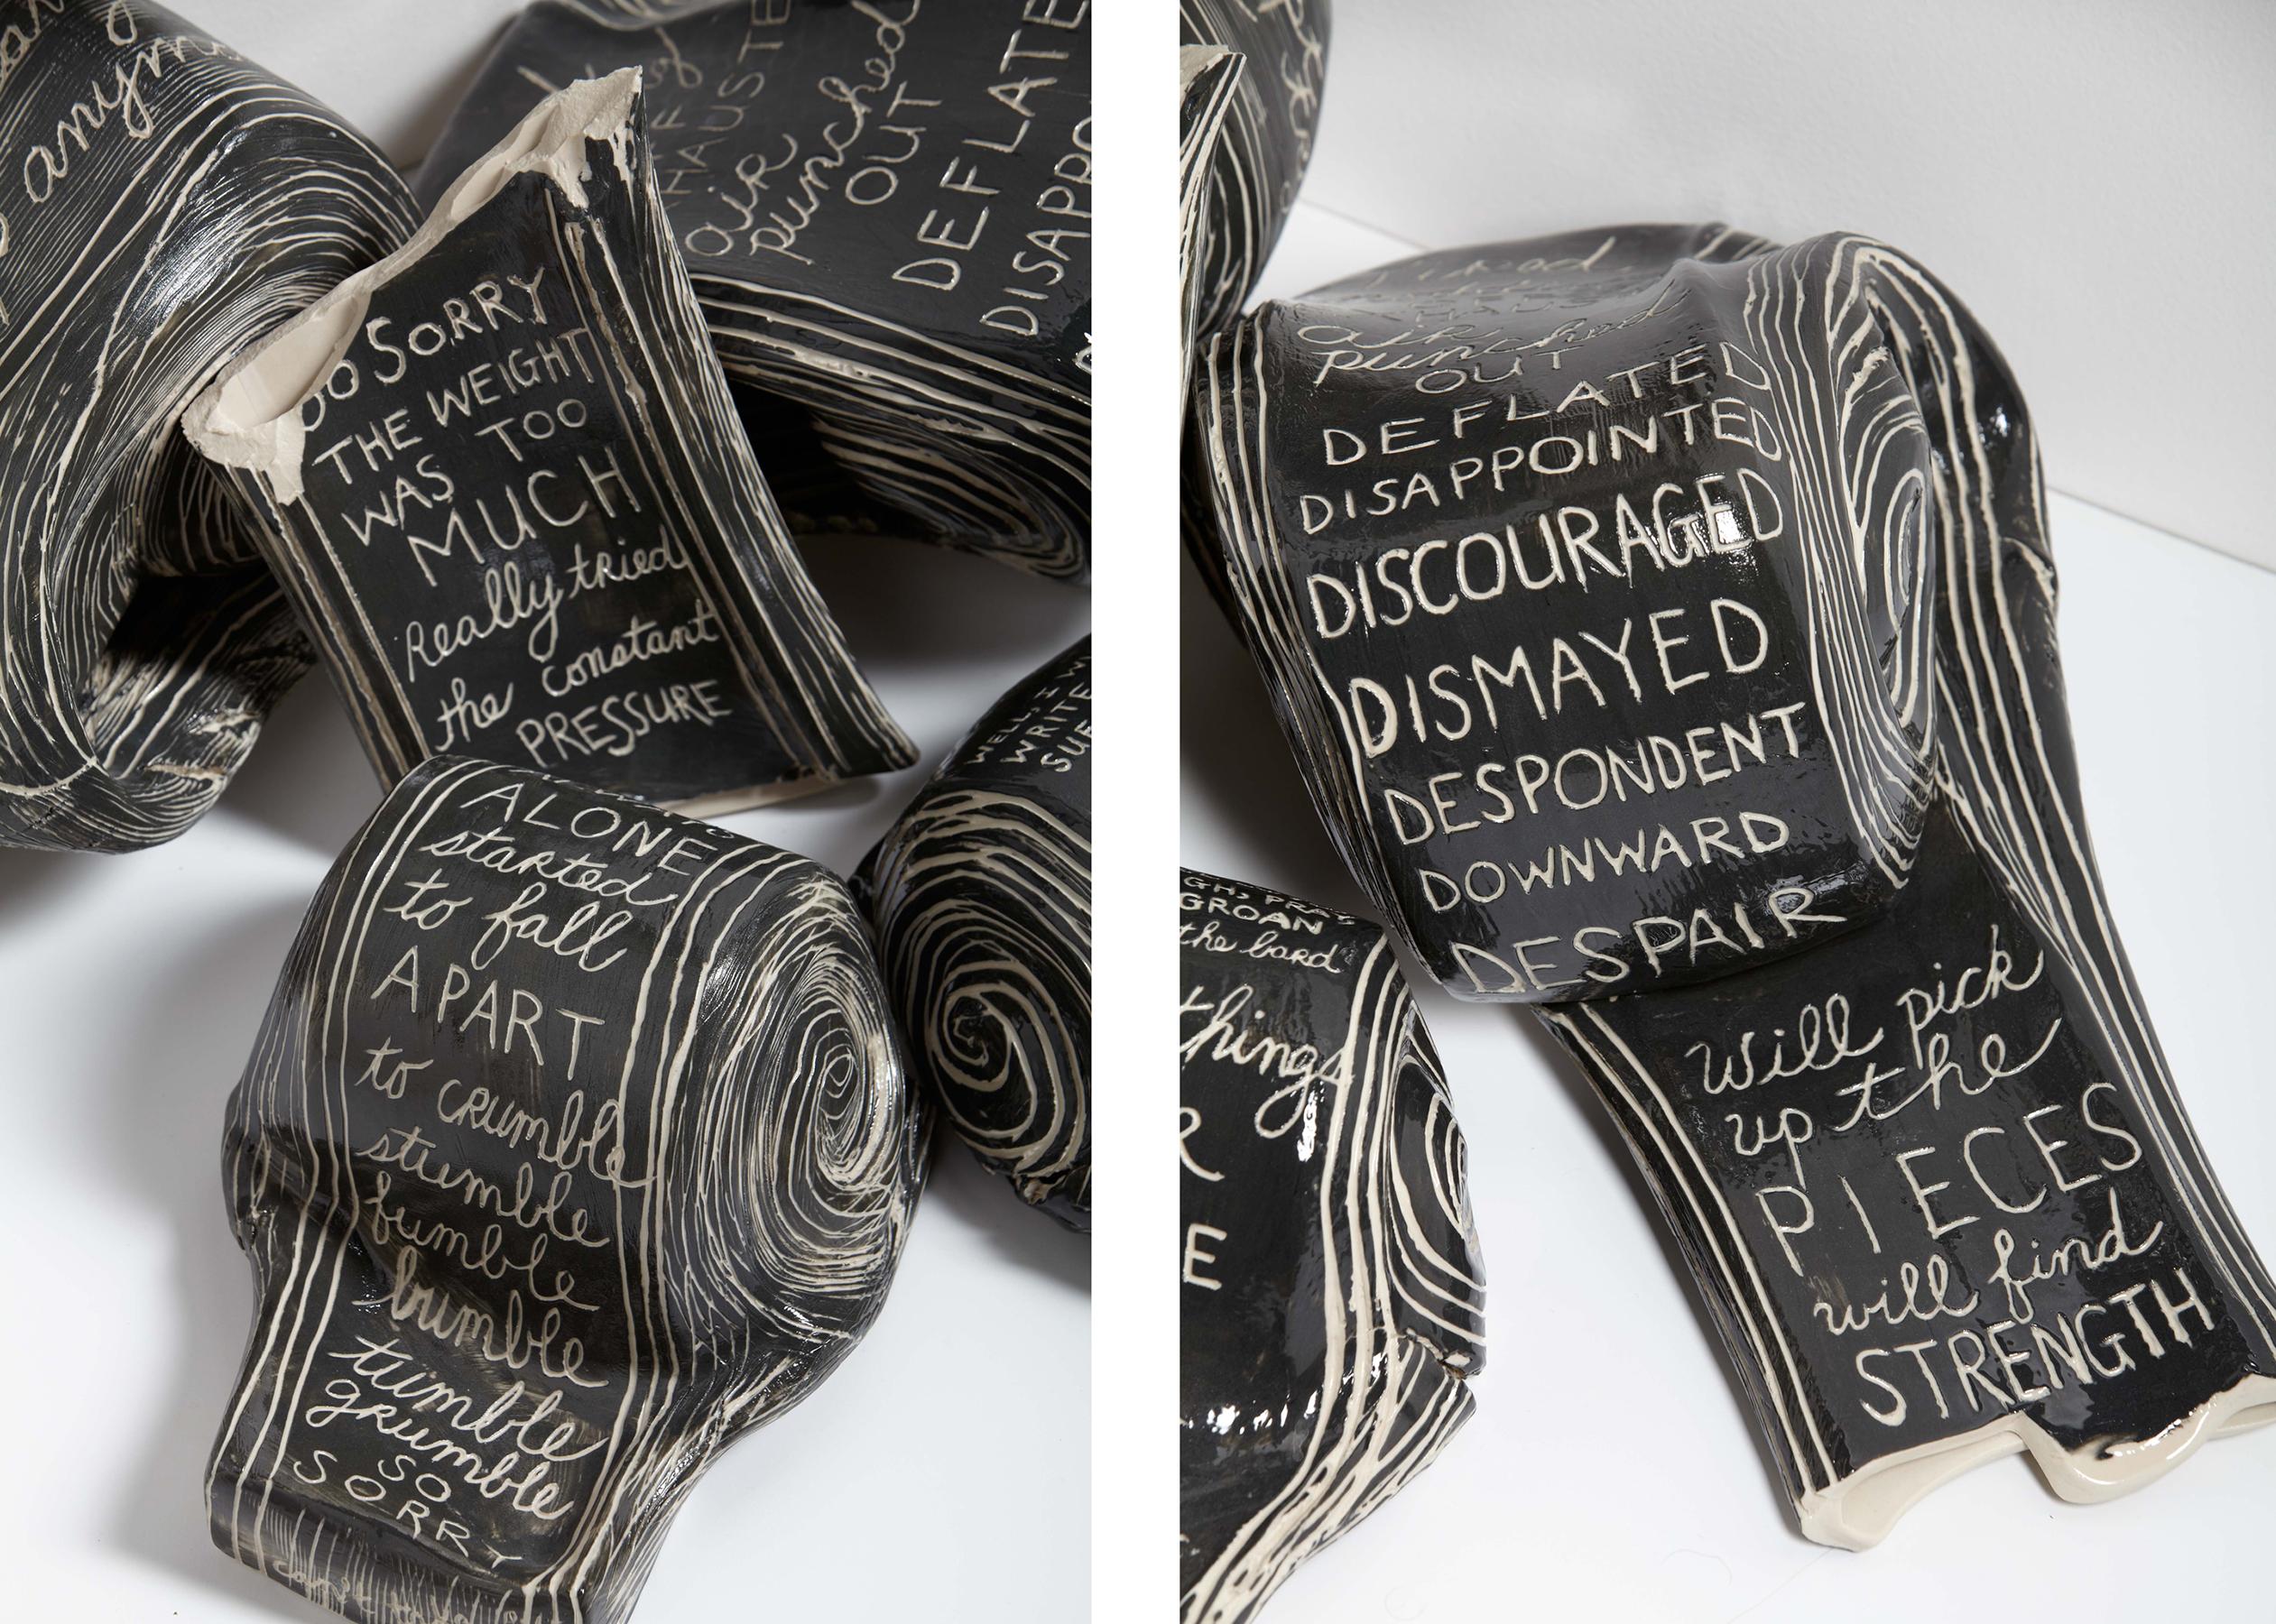 any
air
punched
OUT
SO SORRY
THE WEIGHT
WAS TOO
MUCH
Really tried
the constant
PRESSURE
ALONE
started
to fall
APART
to crumble
stumble
fumble
bumble
tumble
grumble
SO
SORRY
WELL I
WRITE
air
punched
OUT
DEFLATED
DISAPPOINTED
DISCOURAGED
DISMAYED
DESPONDENT
DOWNWARD
DESPAIR
Will pick
up the
PIECES
will find
STRENGTH
PRAY
GROAN
the bard
things